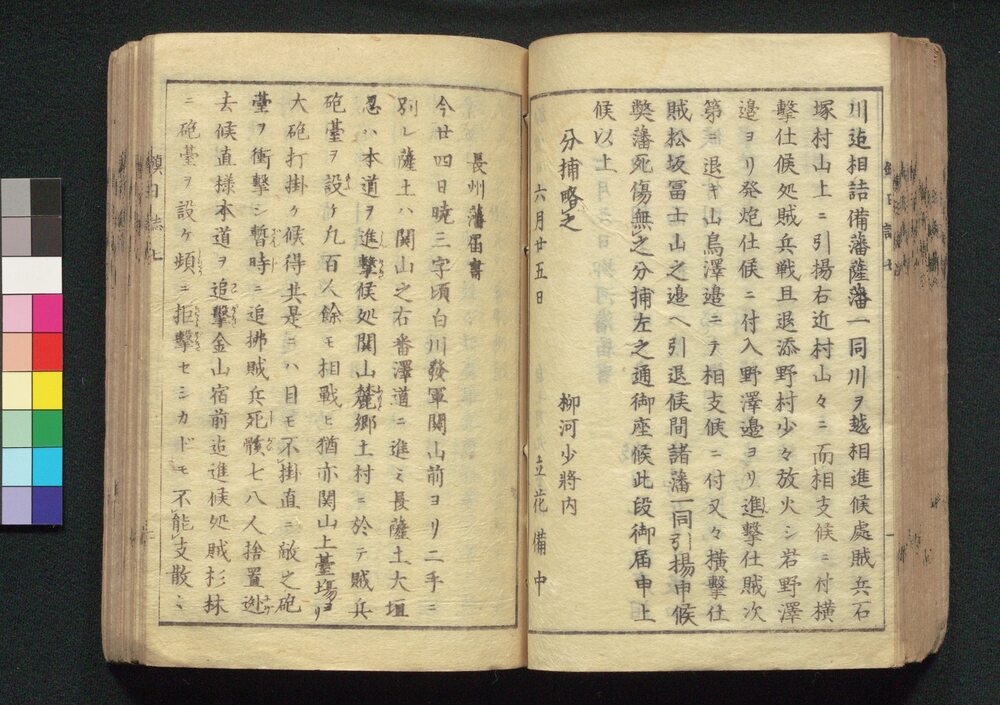 川迄相詰備藩薩藩一同川ヲ越相進候處賊兵石
塚村山上ニ引揚右近村山々ニ而相支候ニ付横
擊仕候処賊兵戦且退添野村少々放火シ岩野澤
邉ヨリ発炮仕候ニ付入野澤邉ヨリ進擊仕賊次
第ニ退キ山鳥澤邉ニテ相支候ニ付又々横擊仕
賊松坂冨士山之邉ヘ引退候間諸藩一同引揚申候
獘藩死傷無之分捕左之通御座候此段御届申上
候以上
分捕略之
柳河少將内
六月廿五日
立花備中
長州藩届書
今廿四日暁三字頃白川發軍関山前ヨリ二手ニ
別レ薩土ハ関山之右番澤道ニ進ミ長薩土大垣
忍ハ本道ヲ進擊候処関山麓郷土村ニ於テ賊兵
砲臺ヲ設ケ九百人餘モ相戰ヒ猶亦関山上臺塲ヨリ
大砲打掛ケ候得共是ニハ目モ不掛直ニ敵之砲
臺ヲ衝擊シ暫時ニ追拂賊兵死骸七八人捨置迯
去候直様本道ヲ追擊金山宿前迄進候処賊杉林
ニ砲臺ヲ設ケ頻ニ拒擊セシカドモ不能支散ミ
鎮日誌七